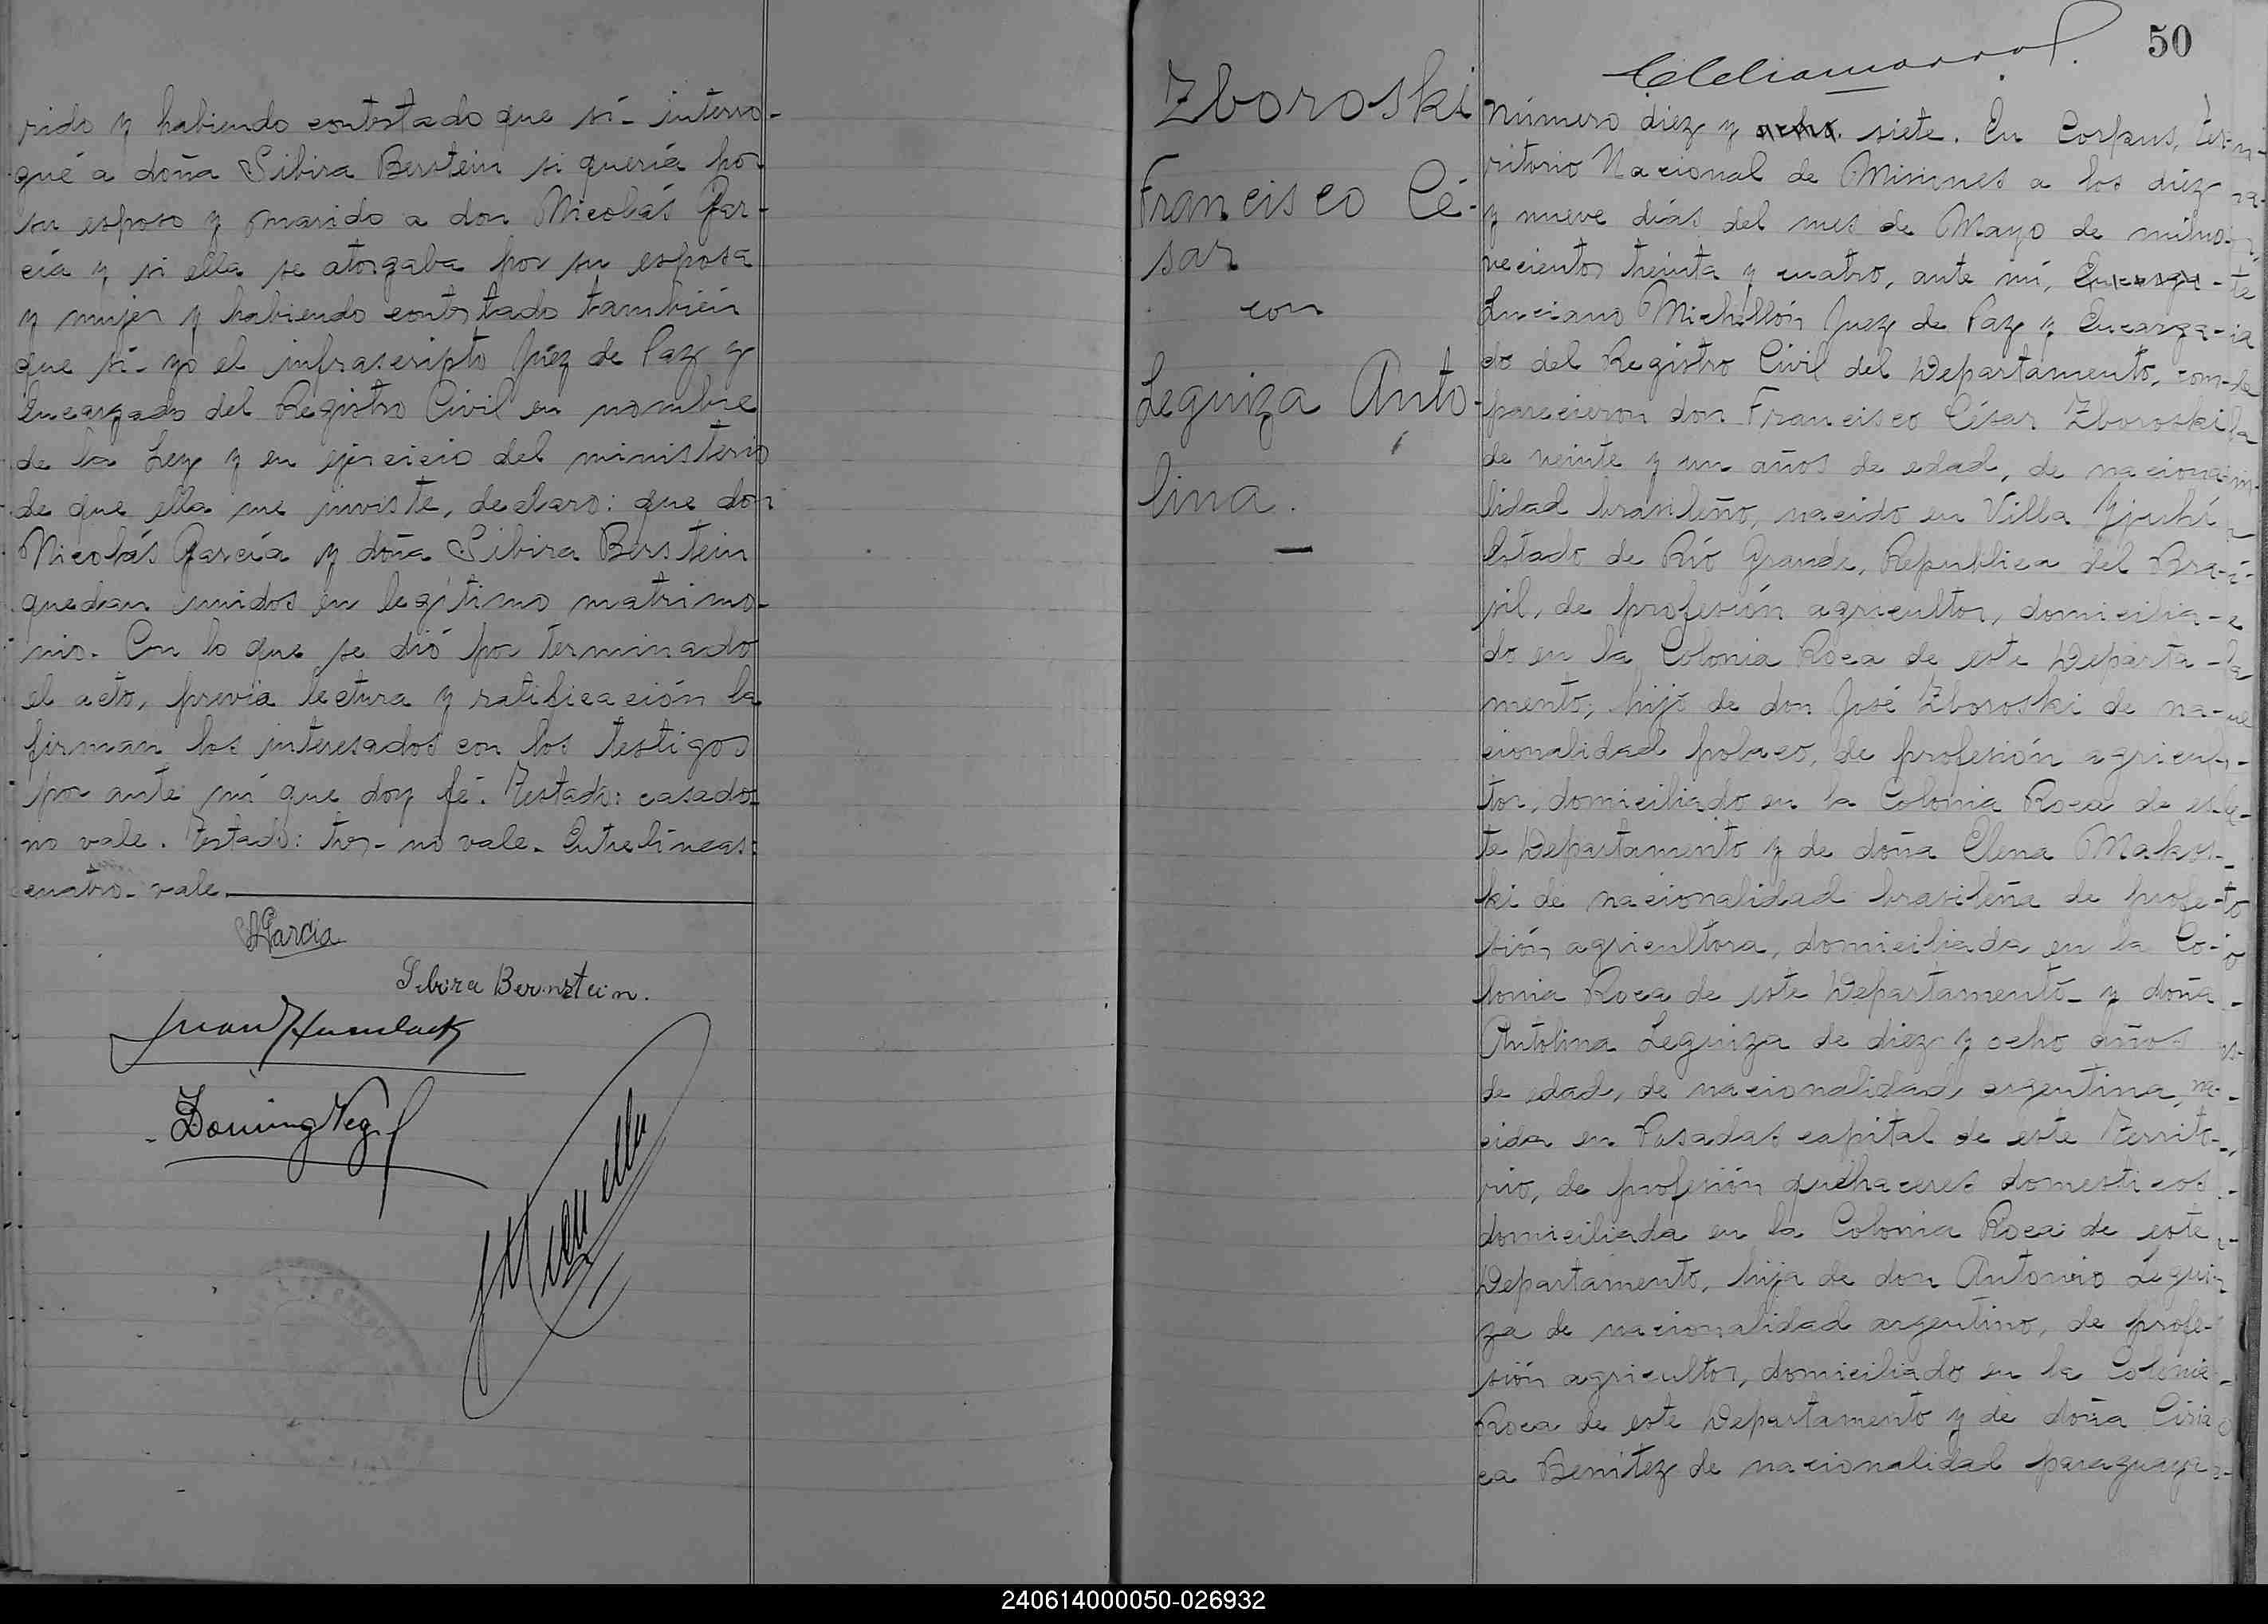 rido y habiendo contestado que sí- interro-
gué a doña Sibira Berstein si quería por
su esposo y marido a don Nicolás Gar-
cía y si ella se otorgaba por su esposa
y mujer y habiendo contestado también
que sí- yo el infrascripto Juez de Paz y
Encargado del Registro Civil en nombre
de la Ley y en ejercicio del ministerio
de que ella me inviste, declaro: que don
Nicolás García y doña Sibira Berstein
quedan unidos en legítimo matrimo-
nio. Con lo que se dió por terminado
el acto, previa lectura y ratificación la
firman los interesados con los testigos
por ante mí que doy fé. Testado: casado-
no vale. Testado: tres- no vale. Entrelíneas:
cuatro- vale.
NGarcia
Sibira Bernstein.
Juan
50
Zboroski
Francisco Cé-
sar
con
Leguiza Anto-
lina.
Número diez y ocho siete. En Corpus, Ter-
ritorio Nacional de Misiones a los diez
y nueve días del mes de Mayo de mil no-
vecientos treinta y cuatro, ante mí, Encarga-
Luciano Michillón Juez de Paz y Encarga-
do del Registro Civil del Departamento, com-
parecieron don Francisco César Zboroski
de veinte y un años de edad, de naciona-
lidad brasileño, nacido en Villa Yjuhí
Estado de Río Grande, Republica del Bra-
sil, de profesión agricultor, domicilia-
do en la Colonia Roca de este Departa-
mento; hijo de don José Zboroski de na-
cionalidad polaco, de profesión agricul-
tor, domiciliado en la Colonia Roca de es-
te Departamento y de doña Elena Makos-
ki de nacionalidad brasileña de profe-
sión agricultora, domiciliada en la Co-
lonia Roca de este Departamento- y doña
Antolina Leguiza de diez y ocho años
de edad, de nacionalidad argentina, na-
cida en Posadas capital de este Territo-
rio, de profesión quehaceres domesticos
domiciliada en la Colonia Roca de este
Departamento, hija de don Antonio Legui-
za de nacionalidad argentino, de profe-
sión agricultor, domiciliado en la Colonia
Roca de este Departamento y de doña Ciria
ca Benitez de nacionalidad paraguaya
240614000050-026932